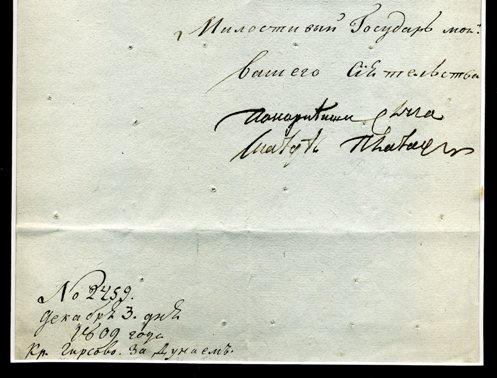 Милостивый Государь мой
вашего Сіятельства
покорнѣйшій слуга
Матвѣй Платовъ
No 2459.
Декабря 3. дня
1809 года
Кр. Гирсово. За Дунаемъ.